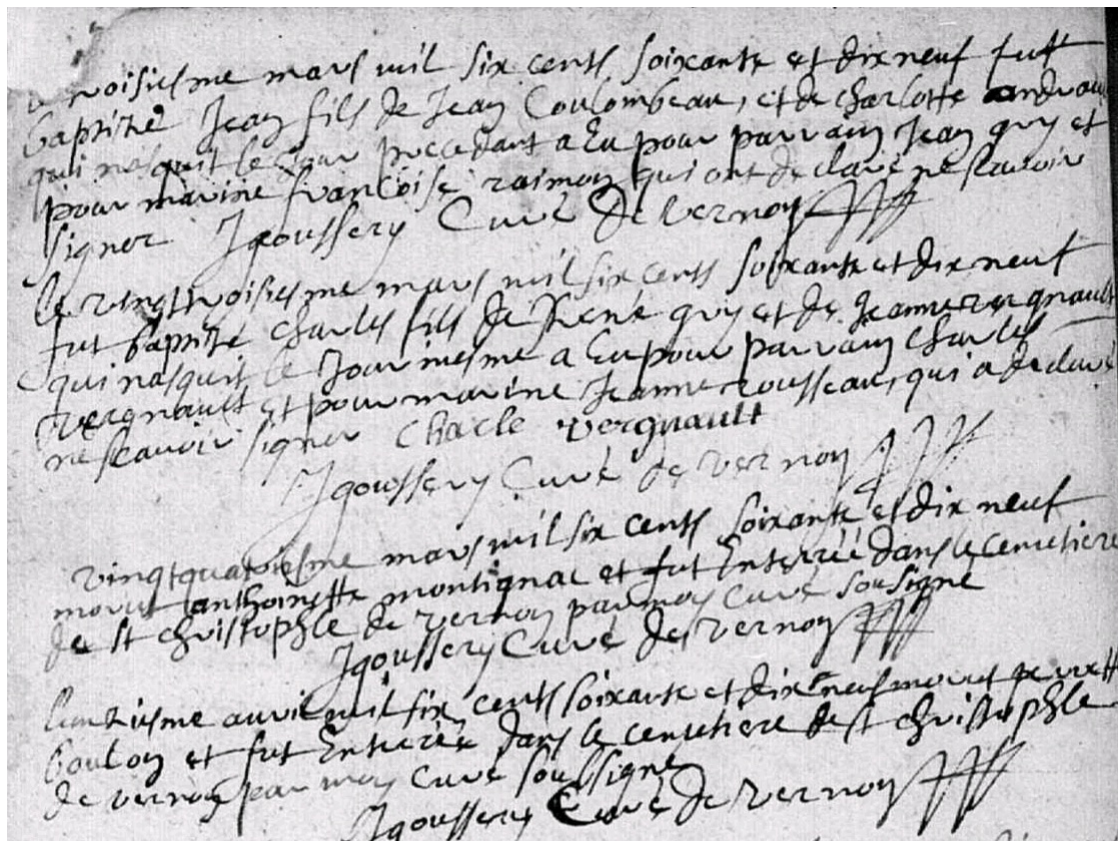 troisiesme mars mil six cents soixante et dix neuf futt
baptizé Jean fils de Jean Coulombeau, et de charlotte
qui nasquit le Jour precedant a Eu pour parrain Jean guy et
pour marine francoise raimon qui ont declaré ne scavoir
signer Jgoussery Curé de vernon
le vingttroisiesme mars mil six cents soixante et dix neuf
fut baptizé charles fils de René guy et de Jeanne vergnault
qui nasquit le Jour mesme a Eu pour parrain charles
vergnault et pour marine Jeanne rousseau, qui a declaré
ne scavoir signer Charle vergnault
Jgoussery Curé de vernon
vingtquatriesme mars mil six cents soixante et dix neuf
morut anthoinette montignac et fut Enterrée dans le cemetiere
de st christophle de vernon par moy Curé sousigne
Jgoussery Curé de vernon
lunziesme avril mil six cents soixante et dix neuf morut
boulon et fut Enterrée dans le cemetiere de st christophle
de vernon par moy Curé soussigne
Jgoussery Curé de vernon